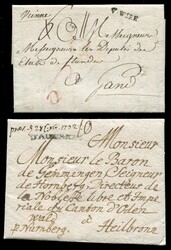 Vienne
V. WIEN
Messeigneurs
Messeigneurs les Députés des
Etats de flandres
à
Gand
Monsieur
Monsieur le Baron
de Gemmingen Seigneur
de Hornberg, Directeur de
la Noblesse libre et Impe
riale du Canton d'Oden
wald
à
p. Nürnberg.
Heilbronn